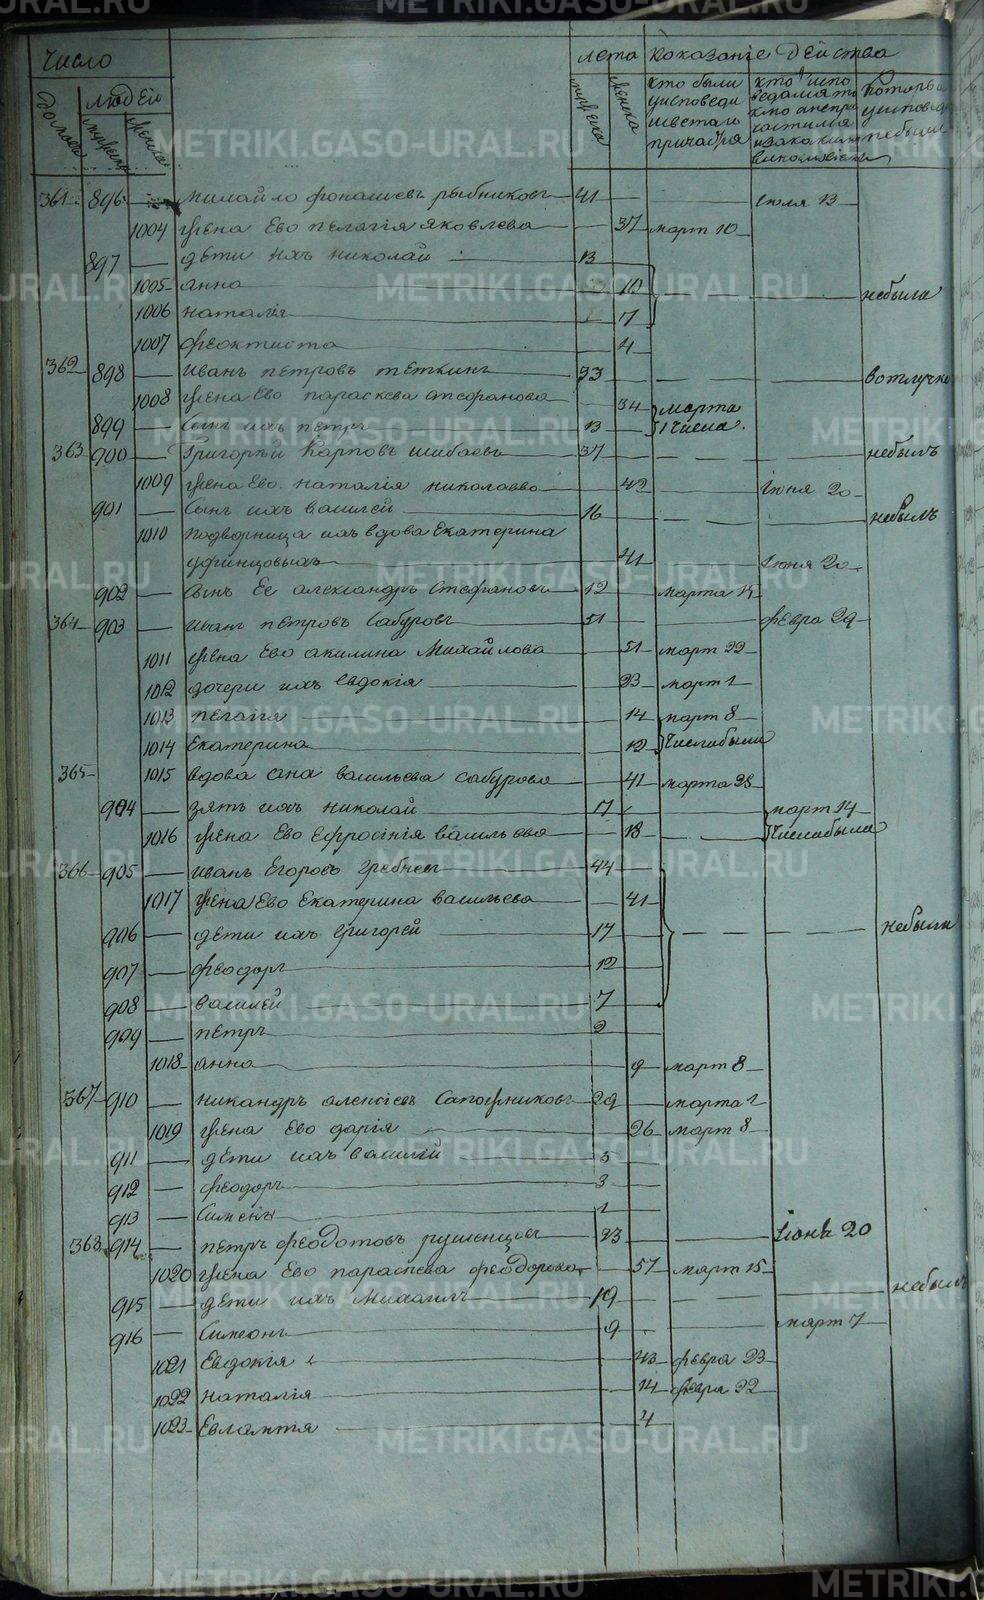 Число лета показаніе действа
домовъ людей мужеска женска кто были у исповеди и святаго причастія кто исповедался но не причастился которы у исповеди небыли
361 896 Михайло Рыбниковъ 41 Іюля 13
1004 жена Ево пелагія Яковлева 37 март 10
897 дети ихъ николай 13
1005 анна 10 небыли
1006 наталія 7
1007 феоктиста 4
362 898 Иванъ петровъ теткинъ вотлучке
1008 жена Ево параскева 34 марта
899 Сынъ ихъ петръ 13 1 Числа
363 900 Григорій Карповъ шибаевъ 37 небылъ
1009 жена Ево наталія николаева 42 Іюня 20
901 Сынъ ихъ василей 16 небылъ
1010 подворница ихъ вдова Екатерина
41 Іюня 20
902 Сынъ Ее александръ Стефановъ 12 марта
364 903 Иванъ петровъ Сабуровъ 51 февра 29
1011 жена Ево акилина Михайлова 51 март 22
1012 дочери ихъ евдокія 23 март 1
1013 пелагія 14 март 8
1014 Екатерина 12 Числа были
365 1015 вдова анна васильева сабурова 41 марта 28
904 зять ихъ николай 17 март 14
1016 жена Ево Ефросінія васильева 18 Числа были
366 905 Иванъ Егоровъ Гребневъ 44
1017 жена Ево Екатерина васильева 41
906 дети ихъ григорей 17 небыли
907 феодоръ 12
908 василей 7
909 петръ 2
1018 анна 9 март 8
367 910 никандръ алексіевъ Сапожниковъ 29 марта 1
1019 жена Ево дарія 26 март 8
911 дети ихъ василій 5
912 феодоръ 3
913 Симеонъ 1
368 914 петръ феодотовъ Іюня 20
1020 жена Ево параскева феодорова 57 март 15
915 дети ихъ Михаилъ 19 небылъ
916 Симеонъ 9 март 7
1021 Евдокія 43 февра 23
1022 наталія 14 февра 22
1023 4
METRIKI.GASO-URAL.RU